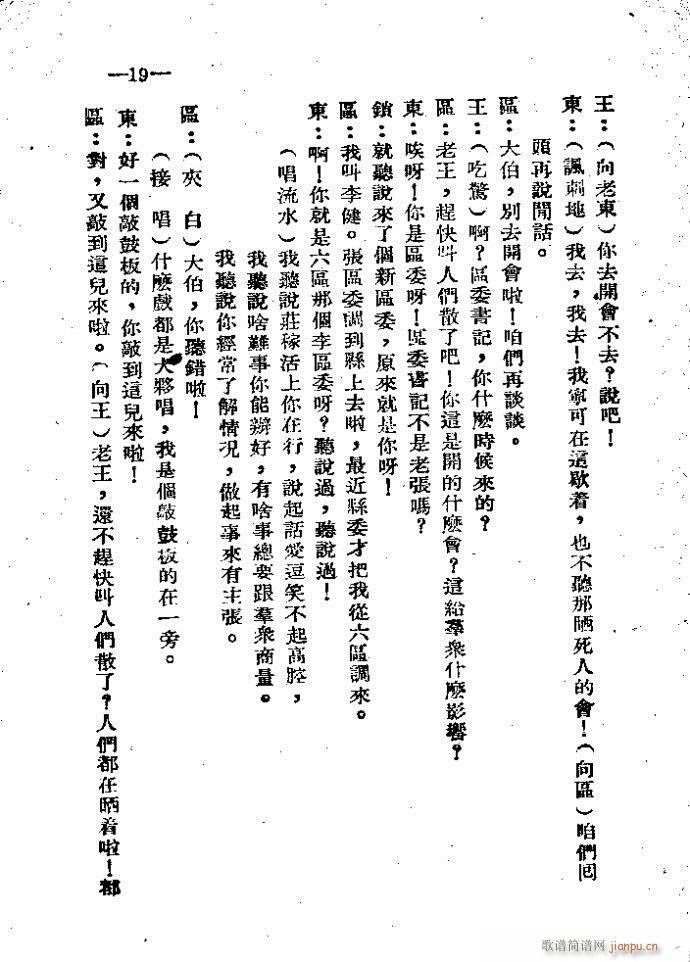 —19—
王：（向老東）你去開會不去？說吧！
東：（諷刺地）我去，我去！我寧可在這歇着，也不聽那晒死人的會！（向區）咱們回
頭再說閒話。
區：大伯，別去開會啦！咱們再談談。
王：（吃驚）啊？區委書記，你什麽時候來的？
區：老王，趕快叫人們散了吧！你這是開的什麽會？這給羣衆什麽影響？
東：唉呀！你是區委呀！區委書記不是老張嗎？
鎖：就聽說來了個新區委，原來就是你呀！
區：我叫李健。張區委調到縣上去啦，最近縣委才把我從六區調來。
東：啊！你就是六區那個李區委呀？聽說過，聽說過！
（唱流水）我聽說莊稼活上你在行，說起話愛逗笑不起高腔，
我聽說啥難事你能辦好，有啥事總要跟羣衆商量。
我聽說你經常了解情况，做起事來有主張。
區：（夾白）大伯，你聽錯啦！
（接唱）什麽戲都是大夥唱，我是個敲鼓板的在一旁。
東：好一個敲鼓板的，你敲到這兒來啦！
區：對，又敲到這兒來啦。（向王）老王，還不趕快叫人們散了？人們都在晒着啦！都
歌谱简谱网
jianpu.cn